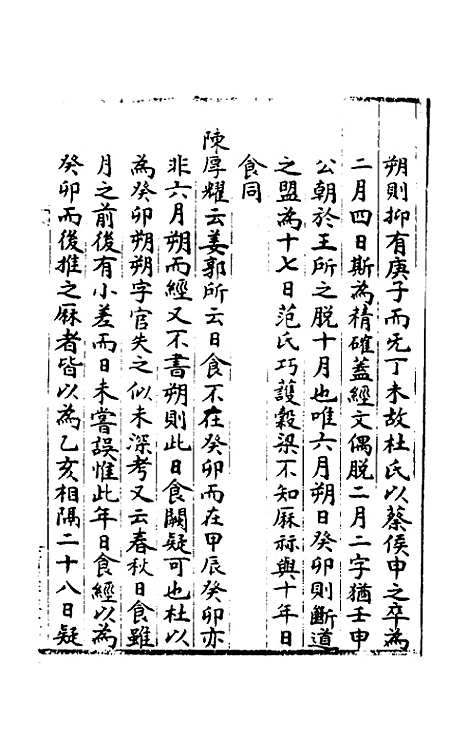 朔則抑有庚子而无丁未故杜氏以蔡侯申之卒為
二月四日斯為精確蓋經文偶脱二月二字猶壬申
公朝於王所之脱十月也唯六月朔日癸卯則斷道
之盟為十七日范氏巧護穀梁不知厤術與十年日
食同
陳厚耀云姜郭所云日食不在癸卯而在甲辰癸卯亦
非六月朔而經又不書朔則此日食闕疑可也杜以
為癸卯朔朔字官失之似未深考又云春秋日食雖
月之前後有小差而日未嘗誤惟此年日食經以為
癸卯而後推之厤者皆以為乙亥相隔二十八日疑